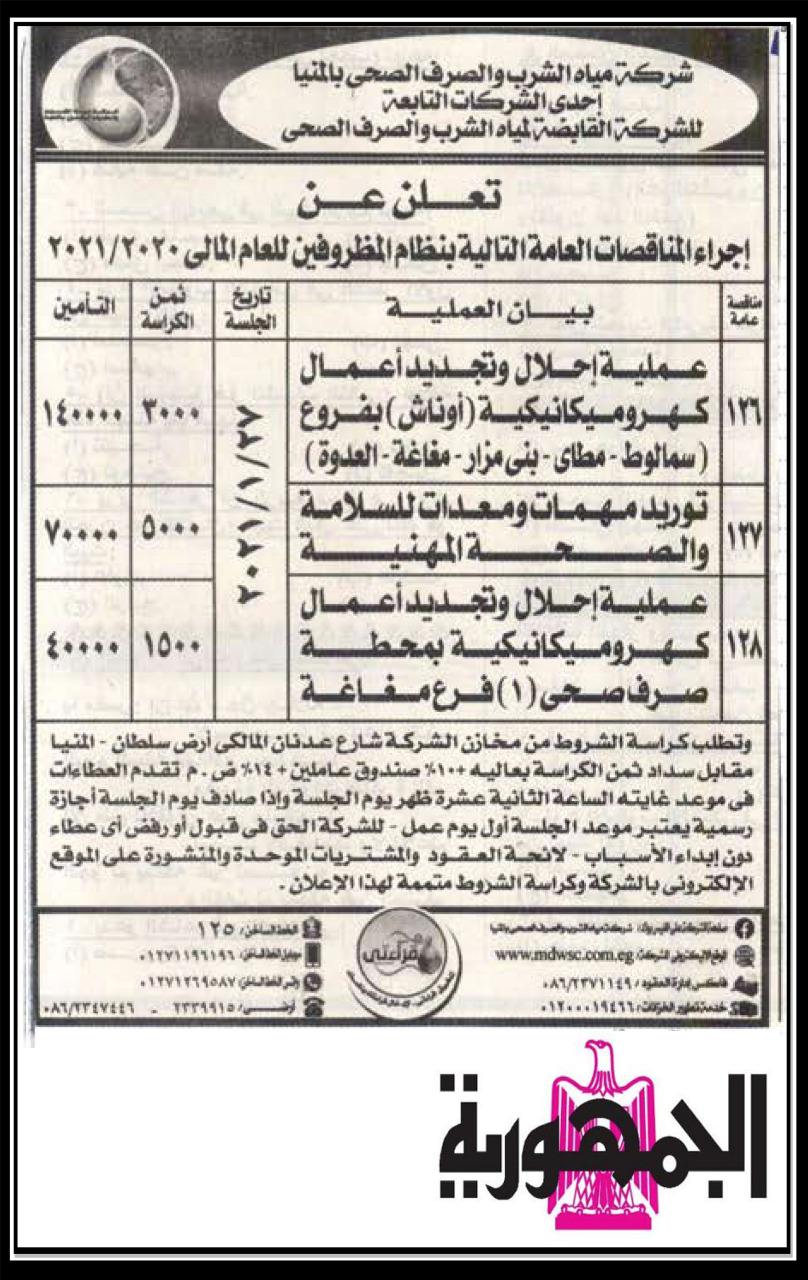 شركة مياه الشرب والصرف الصحى بالمنيا
إحدى الشركات التابعة
للشركة القابضة لمياه الشرب والصرف الصحى
تعلن عن
إجراء المناقصات العامة التالية بنظام المظروفين للعام المالى ٢٠٢١/٢٠٢٠
مناقصة عامة | بيان العملية | تاريخ الجلسة | ثمن الكراسة | التأمين
١٢٦ | عملية إحلال وتجديد أعمال
كهروميكانيكية (أوناش) بفروع
(سمالوط - مطاى - بنى مزار - مغاغة - العدوة) | ٢٠٢١/١/٢٧ | ٣٠٠٠ | ١٤٠٠٠٠
١٢٧ | توريد مهمات ومعدات للسلامة
والصحة المهنية | ٥٠٠٠ | ٧٠٠٠٠
١٢٨ | عملية إحلال وتجديد أعمال
كهروميكانيكية بمحطة
صرف صحى (١) فرع مغاغة | ١٥٠٠ | ٤٠٠٠٠
وتطلب كراسة الشروط من مخازن الشركة شارع عدنان المالكى أرض سلطان - المنيا
مقابل سداد ثمن الكراسة بعاليه +١٠٪ صندوق عاملين + ١٤٪ ض . م تقدم العطاءات
فى موعد غايته الساعة الثانية عشرة ظهر يوم الجلسة وإذا صادف يوم الجلسة أجازة
رسمية يعتبر موعد الجلسة أول يوم عمل - للشركة الحق فى قبول أو رفض أى عطاء
دون إبداء الأسباب - لائحة العقود والمشتريات الموحدة والمنشورة على الموقع
الإلكترونى بالشركة وكراسة الشروط متممة لهذا الإعلان .
صفحة الشركة على الفيس بوك : شركة مياه الشرب والصرف الصحى بالمنيا
الموقع الإليكترونى للشركة : www.mdwsc.com.eg
فاكس إدارة العقود : ٠٨٦/٢٣٧١١٤٩
خدمة تطوير الشركات : ٠١٢٠٠٠١٩٤٦٦
قراءتى
الخط الساخن : ١٢٥
موبايل الخط الساخن : ٠١٢٧١١٩٦١٩٦
واتس الخط الساخن : ٠١٢٧١٢٦٩٥٨٧
أرضى : ٢٣٣٩٩١٥ - ٠٨٦/٢٣٤٧٤٤٦
الجمهورية